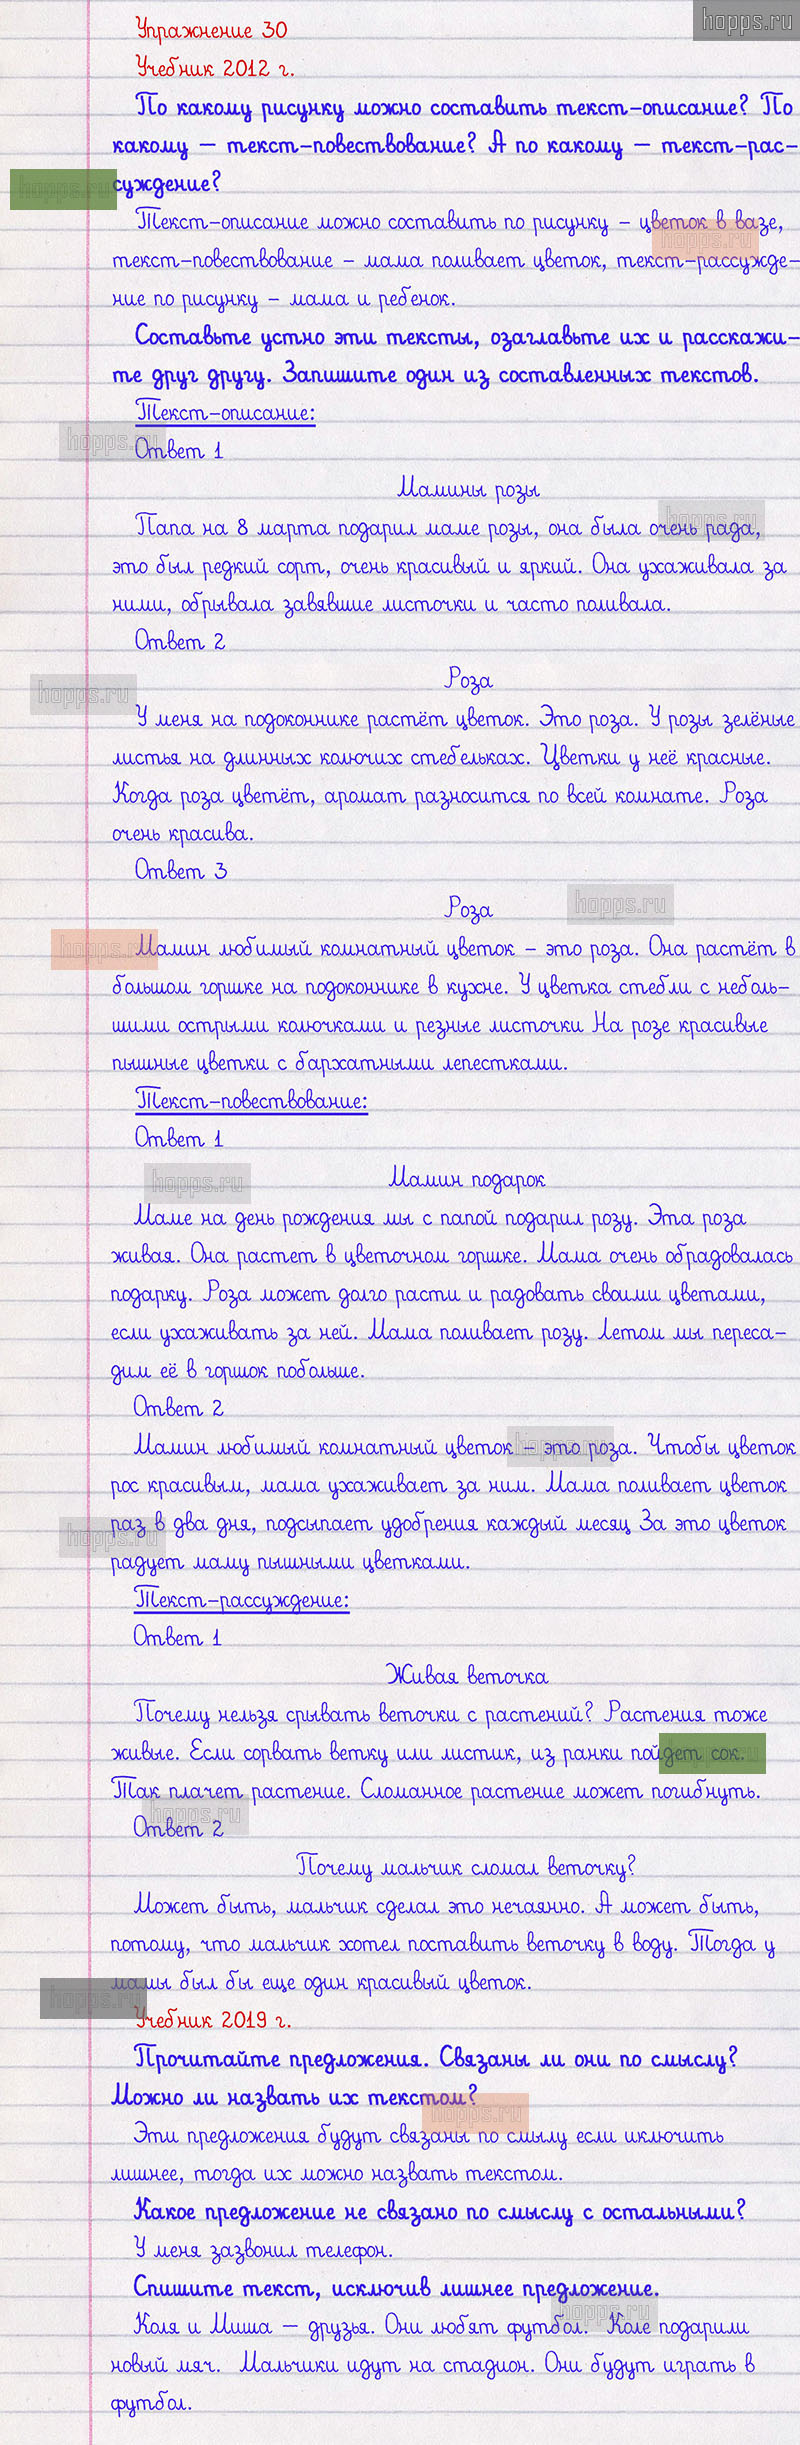 hopps.ru
Упражнение 30
Учебник 2012 г.
По какому рисунку можно составить текст-описание? По
какому – текст-повествование? А по какому – текст-рас-
hopps.ru
суждение?
Текст-описание можно составить по рисунку – цветок в вазе,
hopps.ru
текст-повествование – мама поливает цветок, текст-рассужде-
ние по рисунку – мама и ребенок.
Составьте устно эти тексты, озаглавьте их и расскажи-
те друг другу. Запишите один из составленных текстов.
Текст-описание:
hopps.ru
Ответ 1
Мамины розы
hopps.ru
Папа на 8 марта подарил маме розы, она была очень рада,
это был редкий сорт, очень красивый и яркий. Она ухаживала за
ними, обрывала завявшие листочки и часто поливала.
Ответ 2
Роза
hopps.ru
У меня на подоконнике растёт цветок. Это роза. У розы зелёные
листья на длинных колючих стебельках. Цветки у неё красные.
Когда роза цветёт, аромат разносится по всей комнате. Роза
очень красива.
Ответ 3
hopps.ru
Роза
hopps.ru
Мамин любимый комнатный цветок – это роза. Она растёт в
большом горшке на подоконнике в кухне. У цветка стебли с неболь-
шими острыми колючками и резные листочки На розе красивые
пышные цветки с бархатными лепестками.
Текст-повествование:
Ответ 1
Мамин подарок
hopps.ru
Маме на день рождения мы с папой подарил розу. Эта роза
живая. Она растет в цветочном горшке. Мама очень обрадовалась
подарку. Роза может долго расти и радовать своими цветами,
если ухаживать за ней. Мама поливает розу. Летом мы переса-
дим её в горшок побольше.
Ответ 2
hopps.ru
Мамин любимый комнатный цветок – это роза. Чтобы цветок
рос красивым, мама ухаживает за ним. Мама поливает цветок
раз в два дня, подсыпает удобрения каждый месяц За это цветок
hopps.ru
радует маму пышными цветками.
Текст-рассуждение:
Ответ 1
Живая веточка
Почему нельзя срывать веточки с растений? Растения тоже
живые. Если сорвать ветку или листик, из ранки пойдет сок.
hopps.ru
Так плачет растение. Сломанное растение может погибнуть.
hopps.ru
Ответ 2
Почему мальчик сломал веточку?
Может быть, мальчик сделал это нечаянно. А может быть,
потому, что мальчик хотел поставить веточку в воду. Тогда у
мамы был бы еще один красивый цветок.
hopps.ru
Учебник 2019 г.
Прочитайте предложения. Связаны ли они по смыслу?
Можно ли назвать их текстом?
hopps.ru
Эти предложения будут связаны по смылу если иключить
лишнее, тогда их можно назвать текстом.
Какое предложение не связано по смыслу с остальными?
У меня зазвонил телефон.
Спишите текст, исключив лишнее предложение.
hopps.ru
Коля и Миша – друзья. Они любят футбол. Коле подарили
новый мяч. Мальчики идут на стадион. Они будут играть в
футбол.